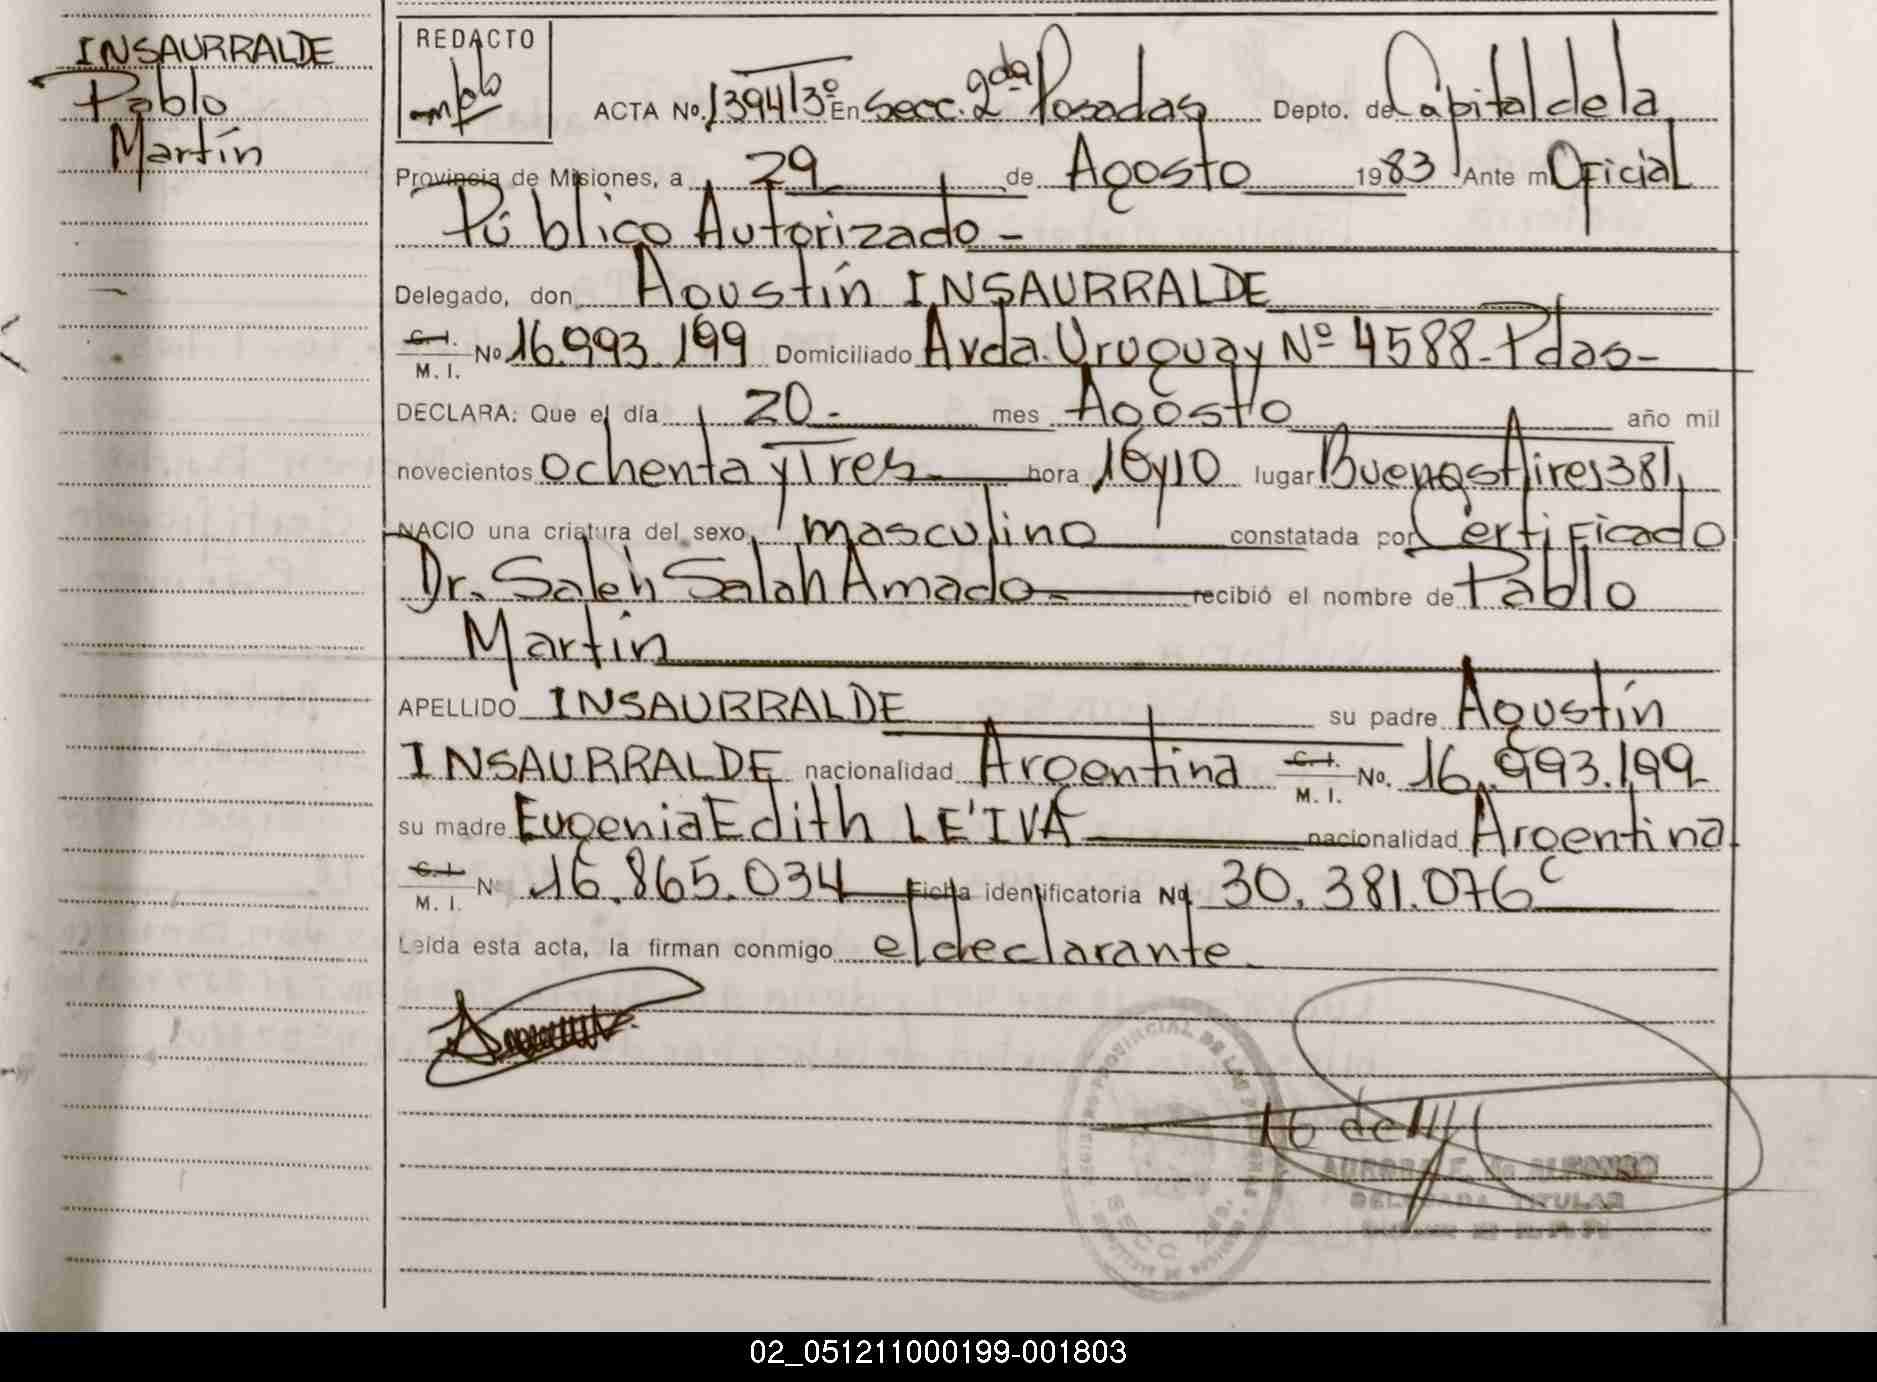 INSAURRALDE
Pablo
Martín
REDACTO
ACTA No. 1394 T3º En Secc. 2da Posadas Depto. de Capital de la
Provincia de Misiones, a 29 de Agosto 1983 Ante mí Oficial
Público Autorizado -
Delegado, don Agustín INSAURRALDE
C.I. M.I. No 16.993.199 Domiciliado Avda. Uruguay Nº 4588-Pdas-
DECLARA: Que el día 20- mes Agosto año mil
novecientos ochenta y Tres- hora 16 y 10 lugar Buenos Aires 381,
NACIO una criatura del sexo masculino constatada por Certificado
Dr. Saleh Salah Amado- recibió el nombre de Pablo
Martín
APELLIDO INSAURRALDE su padre Agustín
INSAURRALDE nacionalidad Argentina C.I. M.I. No. 16.993.199
su madre Eugenia Edith LEIVA nacionalidad Argentina
C.I. M.I. Nº 16.865.034 Ficha identificatoria Nº 30.381.076 C
Leída esta acta, la firman conmigo el declarante.
REGISTRO PROVINCIAL DE LAS PERSONAS
SECC. 2da.
AURORA E. de ALFONSO
DELEGADA TITULAR
02_051211000199-001803